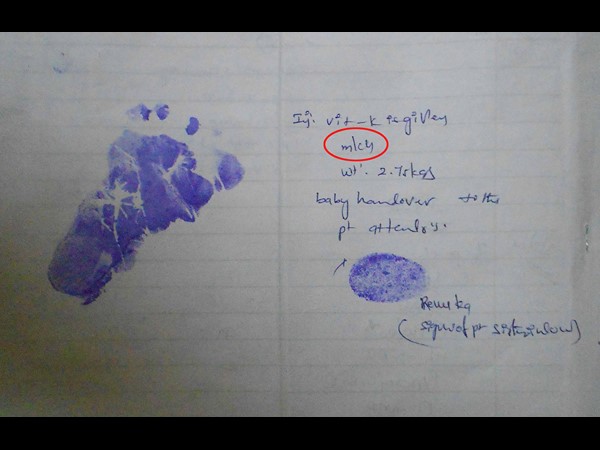 Inj. vit-k is given
wt. 2.75kgs
baby handover to the
pt attendors.
Renuka
(sign of pt sisterinlow)